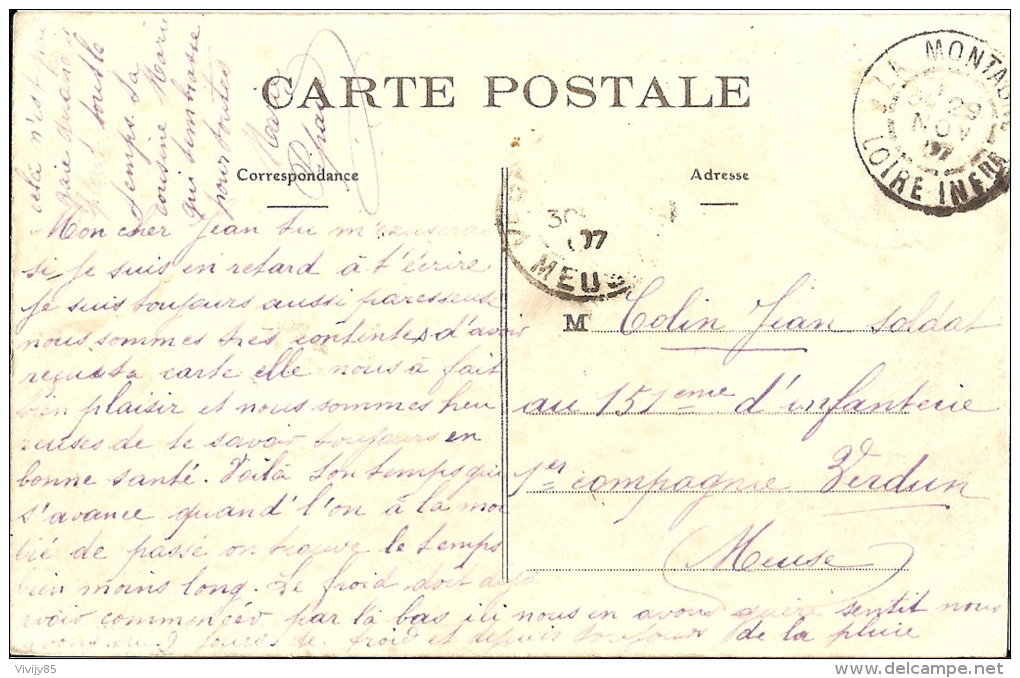 CARTE POSTALE
Correspondance
Adresse
LA MONTAGNE
29
NOV
07
LOIRE INFRE
30
07
MEUSE
Mon cher Jean tu m'excuserai
si je suis en retard à t'écrire
je suis toujours aussi paresseuse
nous sommes très contentes d'avoir
reçu ta carte elle nous à fait
bien plaisir et nous sommes heu
reuses de te savoir toujours en
bonne santé. Voilà ton temps qui
s'avance quand l'on à la moi
tié de passé on trouve le temps
bien moins long. Le froid doit déjà
avoir commencé par la bas ici nous en avons guère sentit nous
avons eu 2 jours de froid et depuis toujours de la pluie
cela n'est pas
gaie quand
pleut tout le
temps. Ta
cousine Marie
qui t'embrasse
pour toutes
Marie
M Colin Jean soldat
au 151eme d'infanterie
1er compagnie Verdun
Meuse
Vivijy85